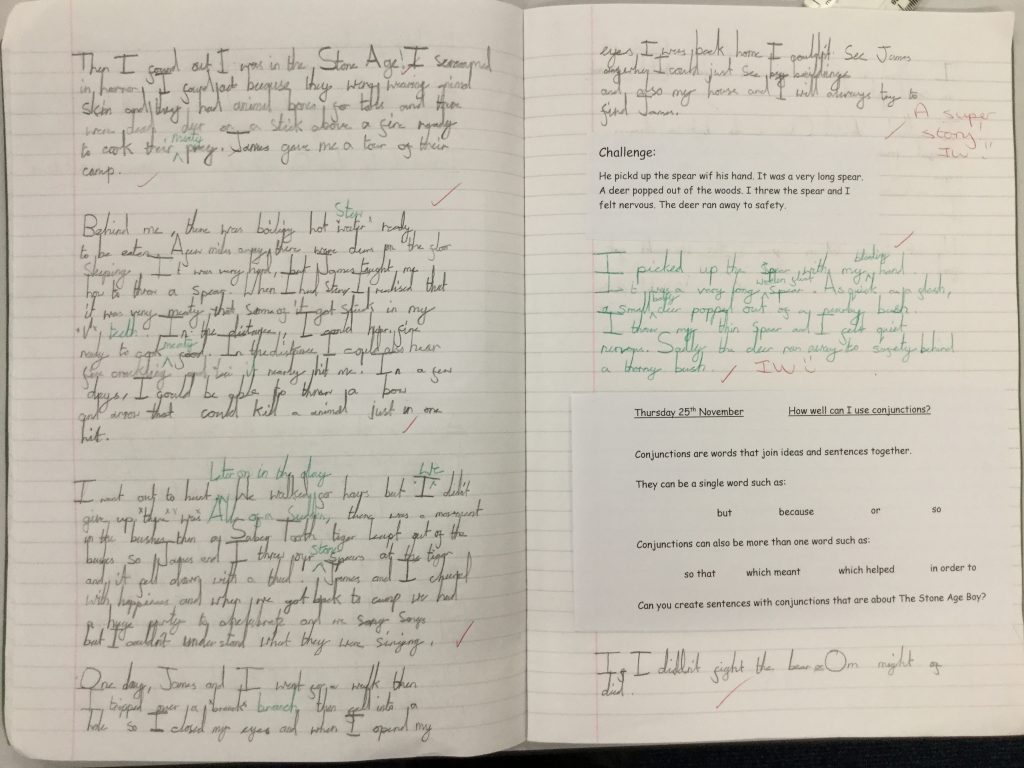 Then I found out I was in the Stone Age! I screamed
in horror, I found out because they were wearing animal
skin and they had animal bones for
were deer on a stick above a fire ready
to cook their meaty prey. James gave me a tour of their
camp.
Behind me, there was boiling hot "water" Stew ready
to be eaten. A few miles away, there were deers on the
Sleeping. It was very hard, but James taught me
how to throw a Spear. When I had stew I realised that
it was very meaty that some of it got stuck in my
teeth. In the distance, I could hear fire
ready to cook meaty food. In the distance I could also hear
fire crackling and it nearly hit me. In a few
days, I could be able to throw a bow
and arrow that could kill a animal just in one
hit.
Later on in the day
I went out to hunt, We walked for hays but We I didn't
give up, All of a Sudden, there was a movement
in the bushes then a Saber Tooth tiger leapt out of the
bushes so James and I threw our Stone Spears at the tiger
and it fell down with a thud. James and I cheered
with happiness and when we got back to camp we had
a huge party to and we Sang Songs
but I couldn't understand what they were singing.
One day, James and I went for a walk then
I tripped over a "branch" branch, then fell into a
hole so I closed my eyes and when I opend my
eyes, I was back home I couldn't See James
I could just See
and also my house and I will always try to
find James.
A super
story!
IW
Challenge:
He pickd up the spear wif his hand. It was a very long spear.
A deer popped out of the woods. I threw the spear and I
felt nervous. The deer ran away to safety.
I picked up the Spear with my hand.
It was a very long wooden Spear. As quick as a flash,
a Small deer popped out of a nearby bush.
I threw my thin Spear and I felt quiet
nervous. Sadly the deer ran away to safety behind
a thorny bush.
IW
Thursday 25th November How well can I use conjunctions?
Conjunctions are words that join ideas and sentences together.
They can be a single word such as:
but because or so
Conjunctions can also be more than one word such as:
so that which meant which helped in order to
Can you create sentences with conjunctions that are about The Stone Age Boy?
If I diddn't fight the bear Om might of
died.